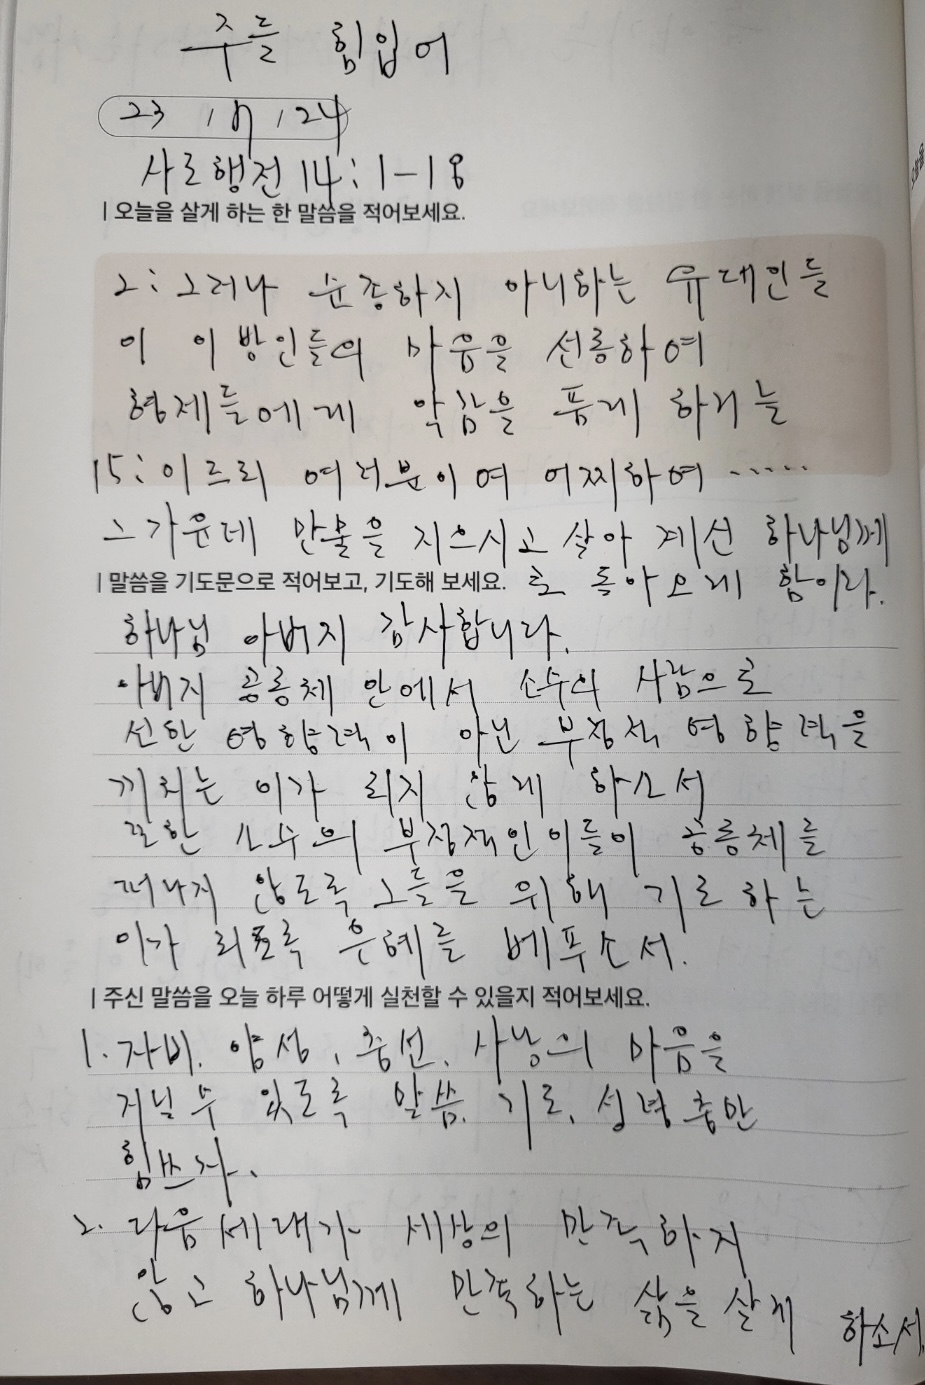 주를 힘입어
23 / 9 / 24
사도행전 14:1-18
| 오늘을 살게 하는 한 말씀을 적어보세요.
2: 그러나 순종하지 아니하는 유대인들
이 이방인들의 마음을 선동하여
형제들에게 악감을 품게 하거늘
15: 이르되 여러분이여 어찌하여 .....
그 가운데 만물을 지으시고 살아 계신 하나님께
로 돌아오게 함이라.
| 말씀을 기도문으로 적어보고, 기도해 보세요.
하나님 아버지 감사합니다.
아버지 공동체 안에서 소수의 사람으로
선한 영향력이 아닌 부정적 영향력을
끼치는 이가 되지 않게 하소서
또한 소수의 부정적인 이들이 공동체를
떠나지 않도록 그들을 위해 기도하는
이가 되도록 은혜를 베푸소서.
| 주신 말씀을 오늘 하루 어떻게 실천할 수 있을지 적어보세요.
1. 자비, 양성, 충선, 사랑의 마음을
지닐 수 있도록 말씀, 기도, 성령충만
힘쓰자.
2. 다음 세대가 세상의 만족하지
않고 하나님께 만족하는 삶을 살게 하소서.